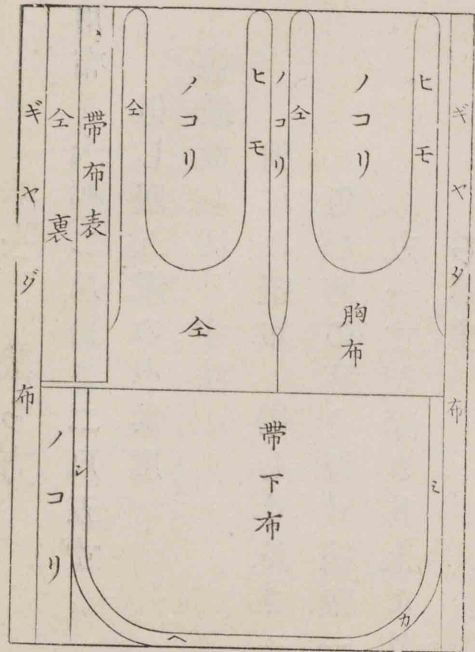 ギヤタ布
ヒモ
ノコリ
仝
ノコリ
ヒモ
ノコリ
仝
帶布表
仝裏
ギヤダ布
胸布
仝
帶下布
ミ
カ
ヘ
シ
ノコリ